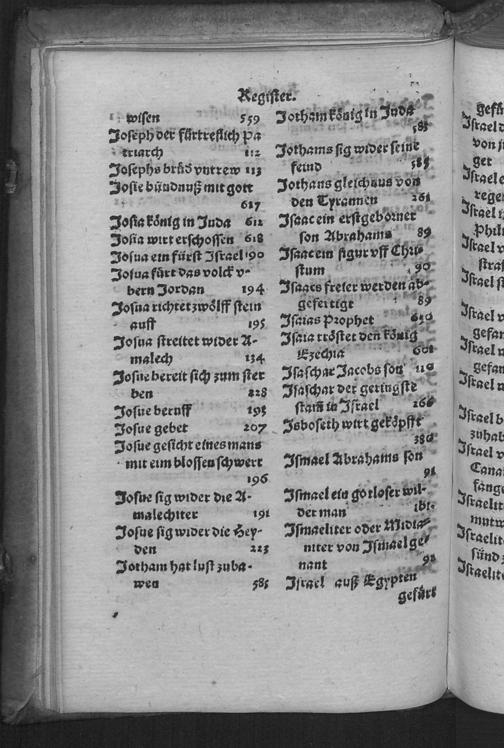 Register.
wisen 559
Joseph der fürtreflich pa
triarch 112
Josephs brüd vntrew 113
Josie bündnuß mit gott
617
Josia könig in Juda 612
Josia wirt erschossen 618
Josua ein fürst Israel 190
Josua fürt das volck v-
bern Jordan 194
Josua richtet zwölff stein
auff 195
Josua streitet wider A-
malech 134
Josue bereit sich zum ster
ben 228
Josue beruff 193
Josue gebet 207
Josue gesicht eines mans
mit eim blossen schwert
196
Josue sig wider die A-
malechiter 191
Josue sig wider die Hey-
den 223
Jotham hat lust zuba-
wen 585
Jotham könig in Juda
585
Jothams sig wider seine
feind 585
Jothans gleichnus von
den Tyrannen 261
Isaac ein erstgeborner
son Abrahams 89
Isaac ein figur vff Chri-
stum 90
Isaacs freier werden ab-
gefertigt 89
Isaias Prophet 650
Isaia tröstet den könig
Ezechia 601
Isaschar Jacobs son 110
Isaschar der geringste
stam̃ in Israel 266
Isboseth wirt geköpfft
380
Ismael Abrahams son
91
Ismael ein gotloser wil-
der man ibi.
Ismaeliter oder Midia-
niter von Ismael ge-
nant 92
Israel auß Egypten
gefürt